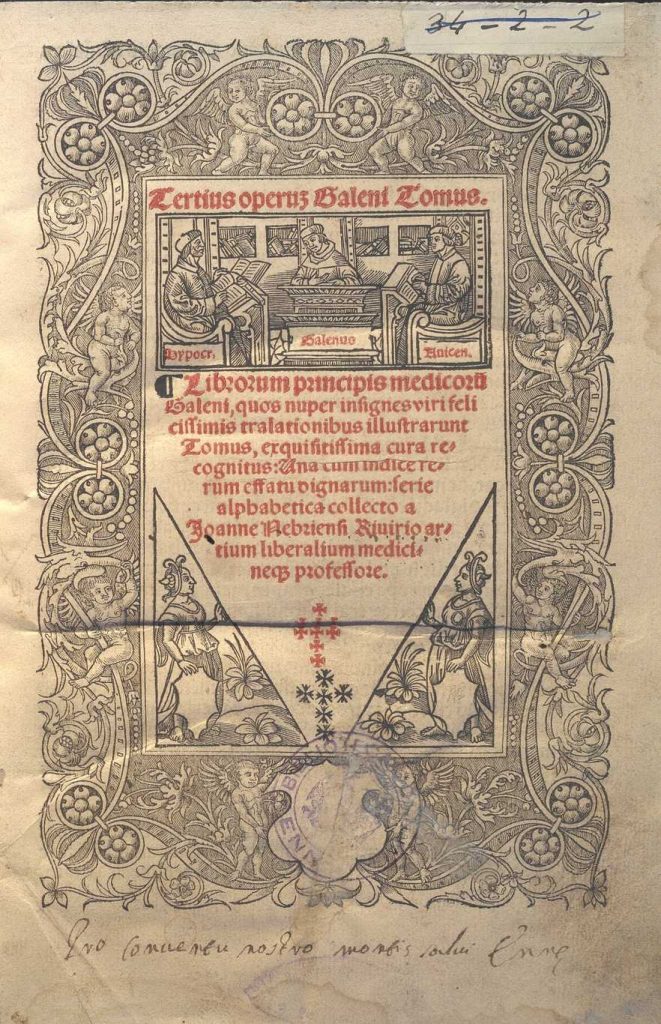 34-2-2
Tertius operuʒ Galeni Tomus.
Hypocr.
Galenus
Auicen.
¶ Librorum principis medicorū
Galeni, quos nuper insignes viri feli
cissimis tralationibus illustrarunt
Tomus, exquisitissima cura re-
cognitus: Una cum indice re-
rum effatu dignarum: serie
alphabetica collecto a
Joanne Nebriensi Riuirio ar-
tium liberalium medici-
neqʒ professore.
Pro conuentu nostro montis